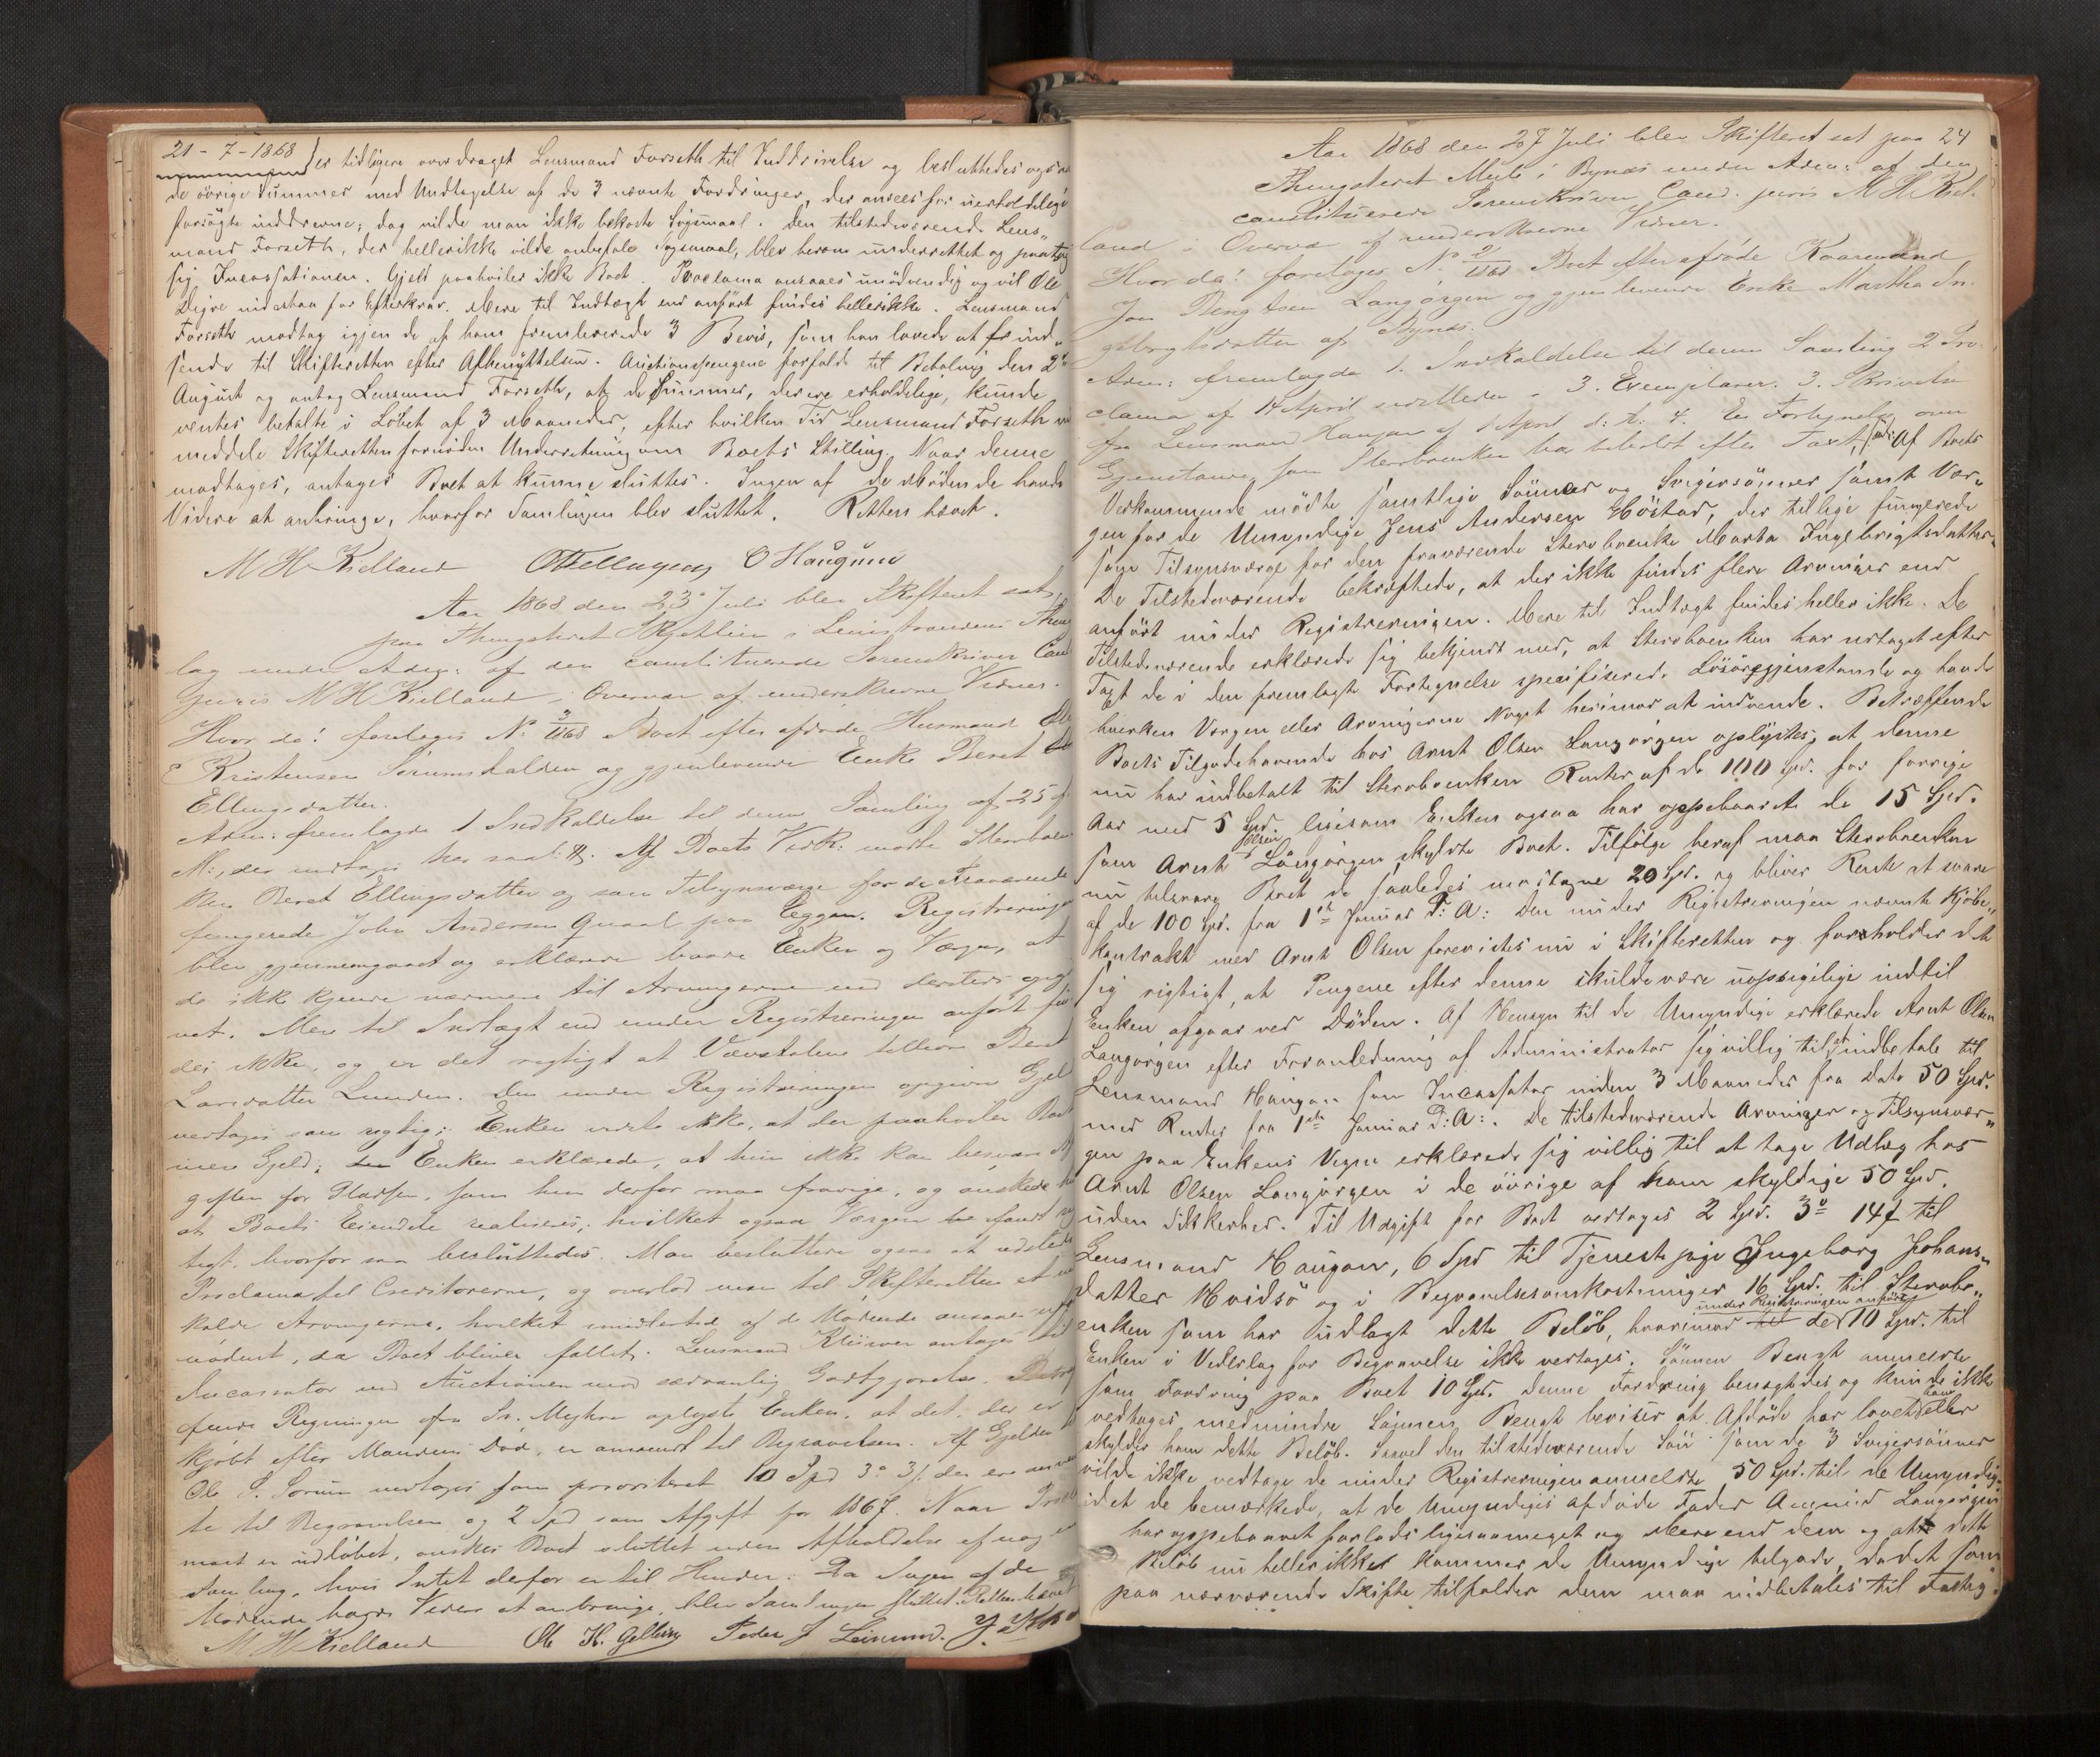 21-7-1868 } er tidligere overdraget Lensmand Forseth til Inddrivelse og besluttedes ogsaa
de övrige Summer med Undtagelse af de 3 nævnte Fordringer, der ansees for uerholdelige
forsögte inddrevne; dog vilde man ikke bekoste Sögsmaal. Den tilstedeværende Lens„
mand Forseth, der hellerikke vilde anbefale Sögsmaal, blev herom underrettet og paatog
sig Incassationen. Gjeld paahviler ikke Boet. Proclama ansaaes unödvendig og vil Ole
Digre indestaa for Efterkrav. Mere til Indtægt end anfört findes hellerikke. Lensmand
Forseth modtog igjen de af ham fremleverede 3 Bevis, som han lovede at ind„
sende til Skifteretten efter Afbenyttelsen. Auctionspengene forfaldt til Betaling den 2den
August og antog Lensmand Forseth, at de Summer, der ere erholdelige, kunde
ventes betalte i Löbet af 3 Maaneder, efter hvilken Tid Lensmand Forseth vil
meddele Skifteretten fornöden Underretning om Boets Stilling. Naar denne
modtages, antages Boet at kunne sluttes. Ingen af de Mödende havde
Videre at anbringe, hvorfor Samlingen blev sluttet. Retten hævet.
M H Kielland O Haugum
Aar 1868 den 23de Juli blev Skifteret sat
paa Thingstedet Skjetlein i Leinstrandens Thing
lag under Adm: af den constituerede Sorenskriver Cand
juris M H Kielland i Overvær af underskrevne Vidner.
Hvor da! foretoges No 3/1868 Boet efter afdöde Husmand Ole
Kristensen Sörumshalden og gjenlevende Enke Beret
Ellingsdatter.
Adm: fremlagde 1 Indkaldelse til denne Samling af 25 f.
M:, der indtages her saal: #. Af Boets Vedk: mödte Stervboen
ken Beret Ellingsdatter og som Tilsynsværge for de Fraværende
fungerede John Andersen Qvaal paa Eggen. Registreringen
blev gjennemgaaet og erklærede baade Enken og Værgen, at
de ikke kjende nærmere til Arvingerne end dersteds opgi
vet. Mere til Indtægt end under Registreringen anfört fin
des ikke, og er det rigtigt at Vævstolen tilhörer Beret
Larsdatter Lunden. Den under Registreringen opgivne Gjeld
vedtages som rigtig; Enken vidste ikke, at der paahviler Boet
mere Gjeld; Enken erklærede, at hun ikke kan besvare Af
giften for Pladsen, som hun derfor maa fravige, og önskede
at Boets Eiendele realiseres, hvilket ogsaa Værgen fandt rig
tigt, hvorfor saa besluttedes. Man besluttede ogsaa at udstede
Proclama til Creditorerne, og overlod man til Skifteretten at ind
kalde Arvingerne, hvilket imidlertid af de Mödende ansaaes
nödent, da Boet bliver fallit. Lensmand Klüwer antages til
Incassator ved Auctionen mod sædvanlig Godtgjörelse. Betræf
fende Regningen fra Sr. Myhre oplyste Enken, at det, der er
kjöbt efter Mandens Död, er anvendt til Begravelsen. Af Gjelden til
Ole S. Sörum vedtages som prioriteret 10 Spd 3o 3f, der ere anvend
te til Begravelsen og 2 Spd som Afgift for 1867. Naar Procla
maet er udlöbet, önskes Boet sluttet uden Afholdelse af nogen
Samling, hvis Intet derfor er til Hinder. Da Ingen af de
Mödende havde Videre at anbringe, blev Samlingen sluttet. Retten hævet
M H Kielland Ole H. Gelling Peder J Leinund.
24
Aar 1868 den 27 Juli blev Skifteret sat paa
Thingstedet Mule i Bynæs under Adm: af den
constituerede Sorenskriver Cand: juris M H Kiel
land i Overvær af underskrevne Vidner.
Hvor da! foretoges No 2/1868 Boet efter afdöde Kaaremand
Jon Bengtsen Langörgen og gjenlevende Enke Martha In
gebrigtsdatter af Bynæs.
Adm: fremlagde 1. Indkaldelse til denne Samling 2 Pro
clama af 14 April indrykket i 3. Exemplarer. 3. Skrivelse
fra Lensmand Haugan af April d: A: 4. En Fortegnelse over
Gjenstande, som Stervboenken har beholdt efter Taxt, Af Boets
Vedkommende mödte samtlige Sönner og Svigersönner samt Vær„
gen for de Umyndige Jens Andersen Höstad, der tillige fungerede
som Tilsynsværge for den fraværende Stervboenke Marta Ingebrigtsdatter.
De Tilstedeværende bekræftede, at der ikke findes flere Arvinger end
anfört under Registreringen. Mere til Indtægt findes heller ikke. De
Tilstedeværende erklærede sig bekjendt med, at Stervboenken har udtaget efter
Taxt de i den fremlagte Fortegnelse specificerede Lösöregjenstande og havde
hverken Værgen eller Arvingerne Noget herimod at indvende. Betræffende
Boets Tilgodehavende hos Arnt Olsen Langörgen oplystes, at denne
nu har indbetalt til Stervboenken Renter af de 100 Spd. for forrige
Aar med 5 Spd. ligesom Enken ogsaa har oppebaaret de 15 Spd.
som Arnt Olsen Langörgen skyldte Boet. Tilfölge heraf maa Stervboenken
nu tilsvare Boet de saaledes modtagne 20 Spd. og bliver Rente at svare
af de 100 Spd. fra 1ste Januar d: A: Den under Registreringen nævnte Kjöbe„
kontrakt med Arnt Olsen forevistes nu i Skifteretten og forholder det
sig rigtigt, at Pengene efter denne skulde være uopsigelige indtil
Enken afgaar ved Döden. Af Hensyn til de Umyndige erklærede Arnt Olsen
Langörgen efter Foranledning af Administrator sig villig til at indbetale til
Lensmand Haugan som Incassator inden 3 Maaneder fra Dato 50 Spd.
med Renter fra 1ste Januar d: A:. De tilstedeværende Arvinger og Tilsynsvær„
gen paa Enkens Vegne erklærede sig villig til at tage Udlæg hos
Arnt Olsen Langörgen i de övrige af ham skyldige 50 Spd.
uden Sikkerhed. Til Udgift for Boet vedtages 2 Spd. 3o 14f til
Lensmand Haugan, 6 Spd til Tjenestepige Ingeborg Johans„
datter Hvidsö og i Begravelsesomkostninger 16 Spd. til Stervbo„
enken som har udlagt dette Belöb, hvorimod de under Registreringen anförte 10 Spd. til
Enken i Vederlag for Begravelse ikke vedtages. Sönnen Bengt anmeldte
som Fordring paa Boet 10 Spd. Denne Fordring benegtedes og kunde ikke
vedtages, medmindre Sönnen Bengt beviser at Afdöde har lovet ham eller
skylder ham dette Belöb. Saavel den tilstedeværende Sön som de 3 Svigersönner
vilde ikke vedtage de under Registreringen anmeldte 50 Spd. til de Umyndige
idet de bemærkede, at de Umyndiges afdöde Fader Langörgen
har oppebaaret forlods ligesaameget og mere end dem og at dette
Belöb nu hellerikke kommer de Umyndige tilgode, da det som
paa nærværende Skifte tilfalder dem maa indbetales til Fattig„